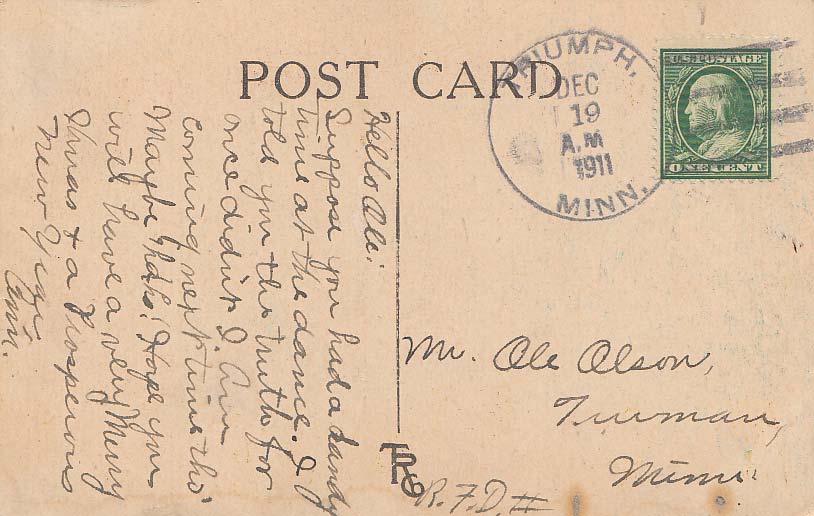 POST CARD
TRIUMPH,
DEC
19
A.M
1911
MINN.
U.S. POSTAGE
ONE CENT
Hello Ole:
Suppose you had a dandy
time at the dance. I
told you the truth for
once didn't I. Am
coming next time tho'
Maybe haha! Hope you
will have a very Merry
Xmas & a Prosperous
New Year
Mr. Ole Olson,
Truman,
Minn.
R.F.D. II